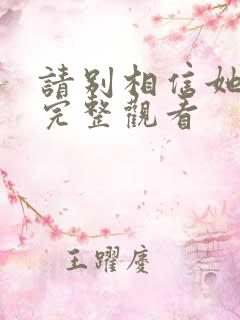 請別相信她
完整觀看
王躍慶